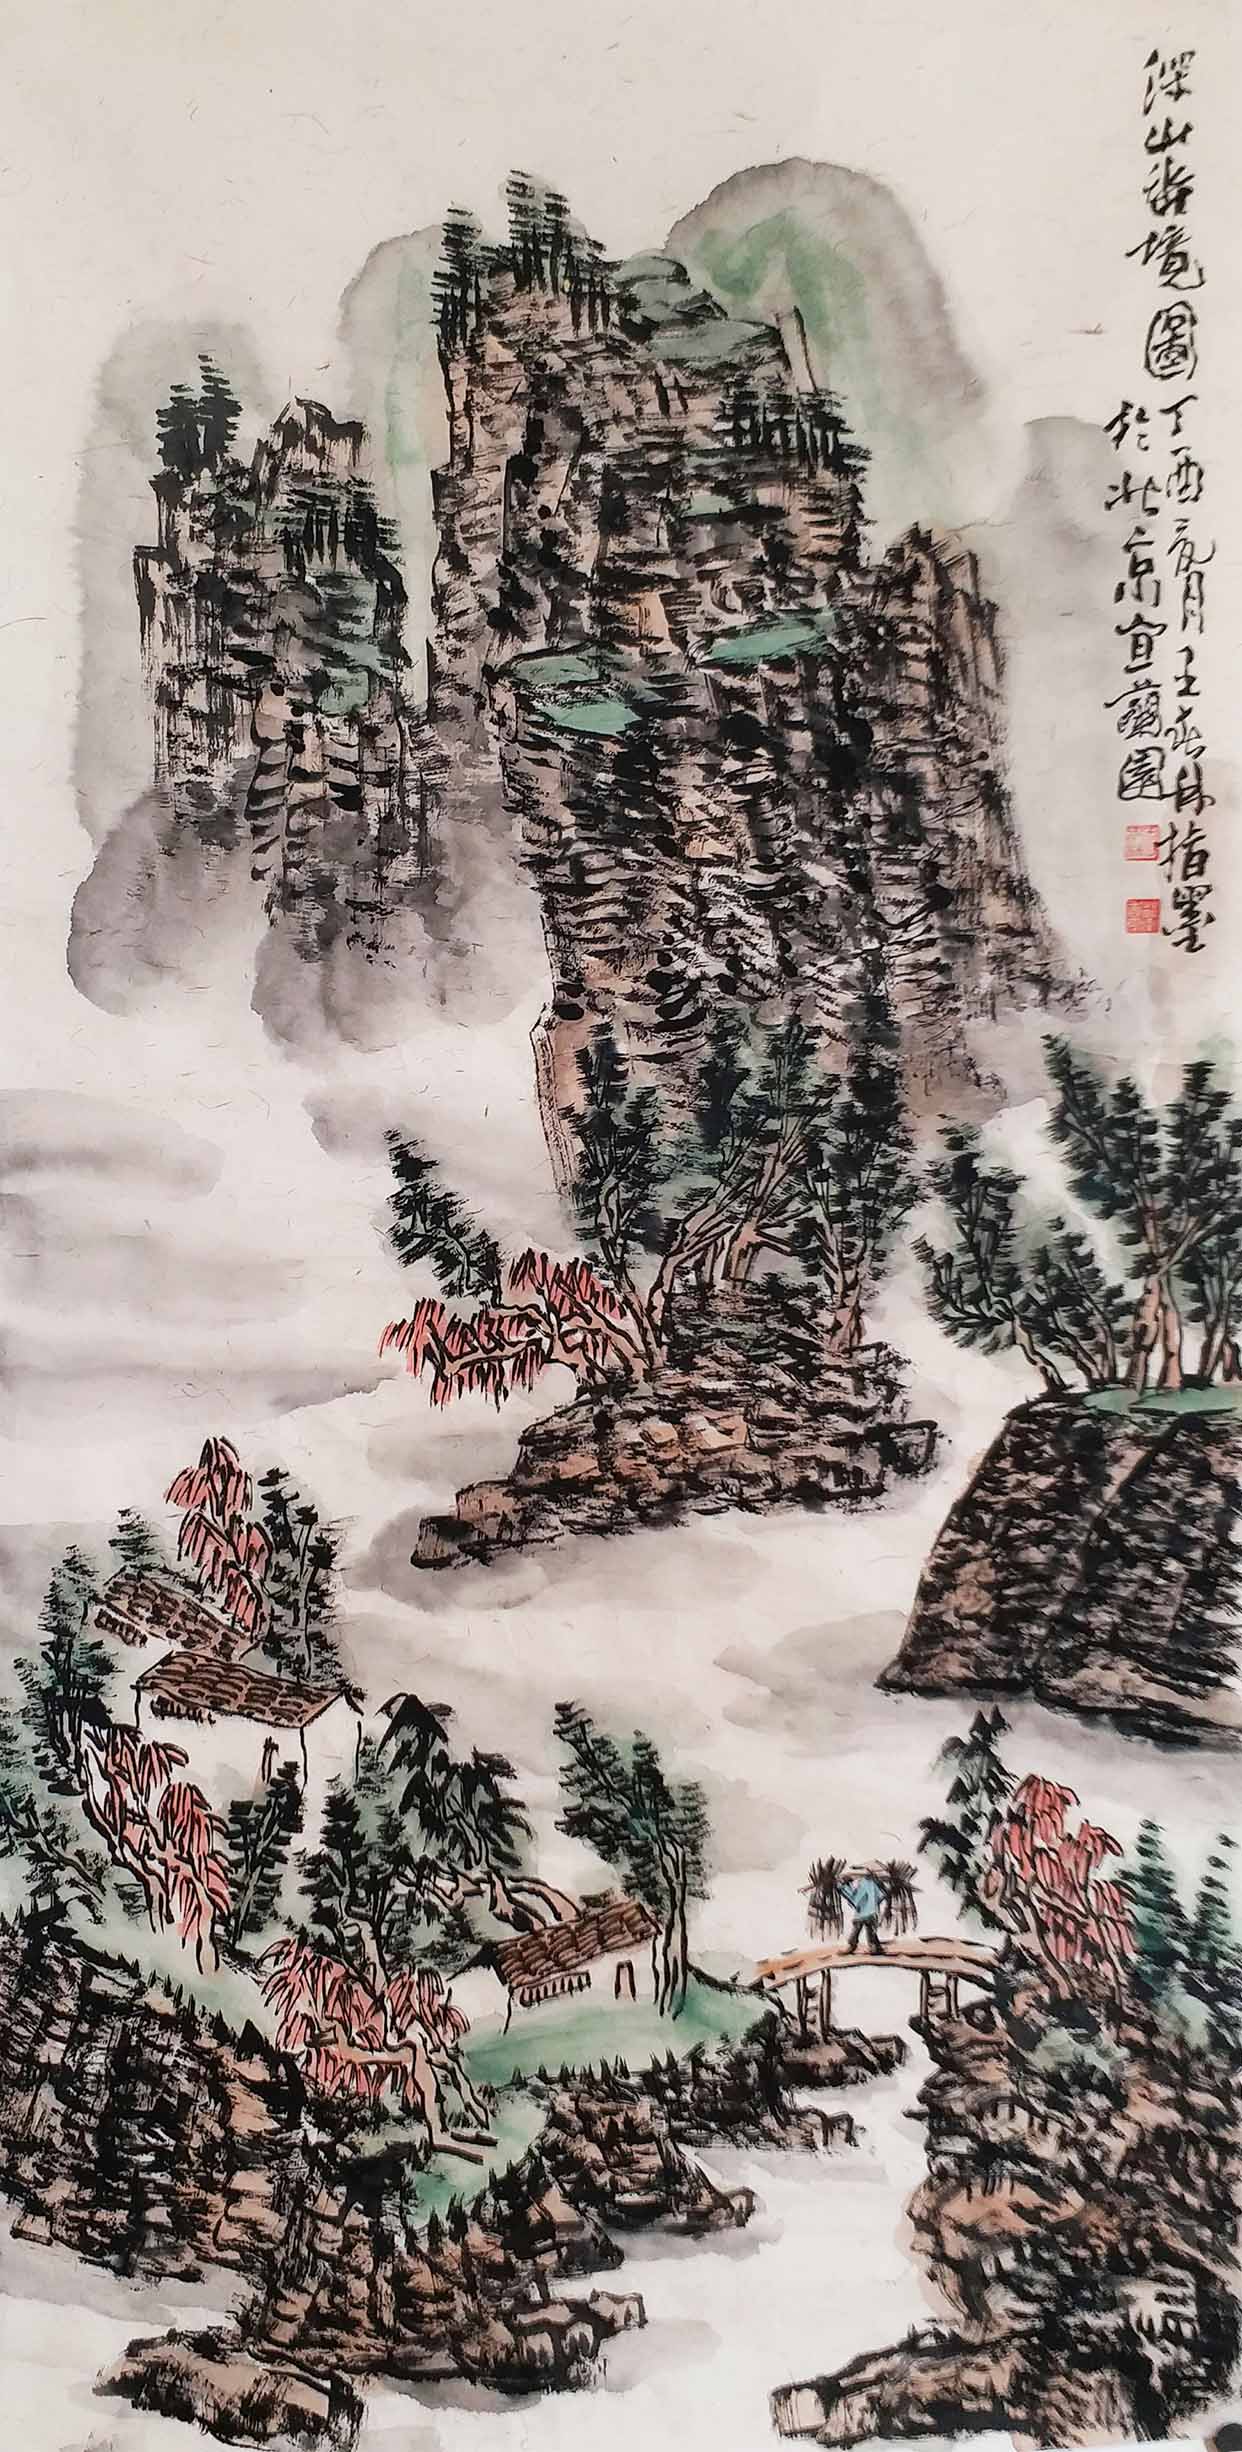 深山境圖 丁酉月王林指墨
於北京宜蘭園